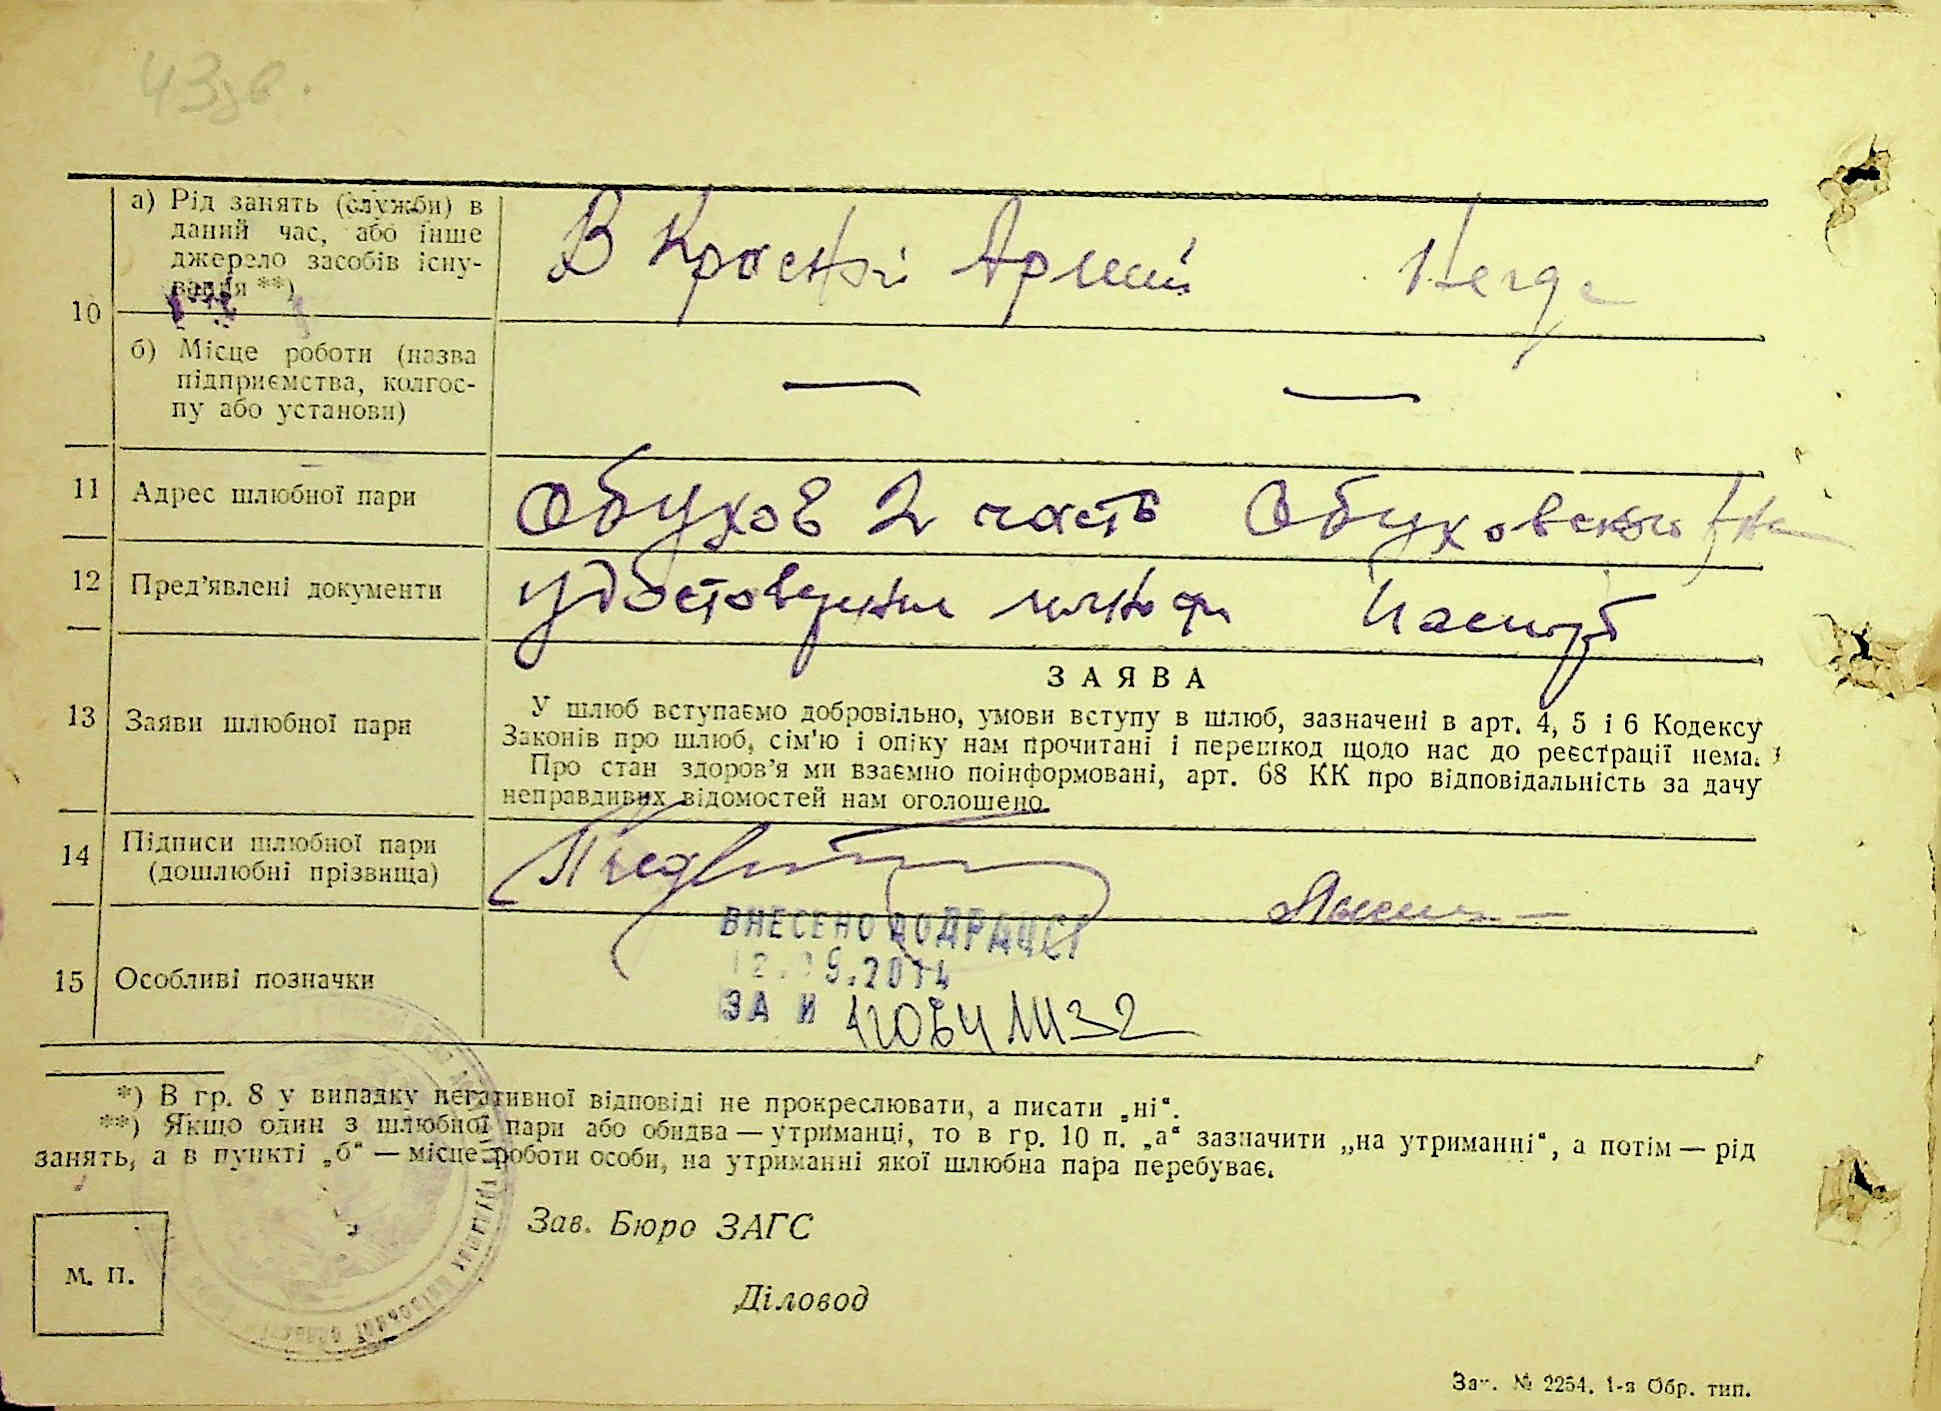 43зв.
а) Рід занять (служби) в
даний час, або інше
джерело засобів існу-
вання **)
В Красній Армии
10
б) Місце роботи (назва
підприємства, колгос-
пу або установи)
— —
11 Адрес шлюбної пари
Обухов 2 часть Обуховского
12 Пред’явлені документи
удостоверение паспорт
13 Заяви шлюбної пари
ЗАЯВА
У шлюб вступаємо добровільно, умови вступу в шлюб, зазначені в арт. 4, 5 і 6 Кодексу
Законів про шлюб, сім’ю і опіку нам прочитані і перешкод щодо нас до реєстрації нема.
Про стан здоров’я ми взаємно поінформовані, арт. 68 КК про відповідальність за дачу
неправдивих відомостей нам оголошено.
14 Підписи шлюбної пари
(дошлюбні прізвища)
15 Особливі позначки
ВНЕСЕНО ДО ДРАЦСГ
ЗА №
*) В гр. 8 у випадку негативної відповіді не прокреслювати, а писати „ні“.
**) Якщо один з шлюбної пари або обидва — утриманці, то в гр. 10 п. „а“ зазначити „на утриманні“, а потім — рід
занять, а в пункті „б“ — місце роботи особи, на утриманні якої шлюбна пара перебуває.
Зав. Бюро ЗАГС
М. П.
Діловод
Зат. № 2254. 1-я Обр. тип.